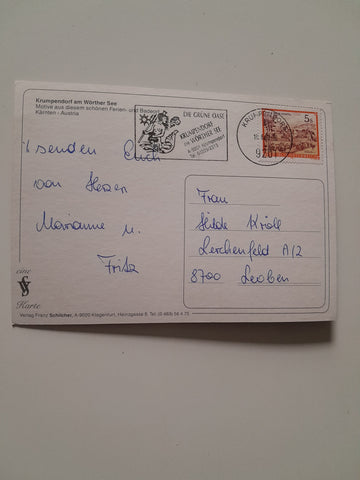 Krumpendorf am Wörther See
Motive aus diesem schönen Ferien- und Badeort
Kärnten - Austria
DIE GRÜNE OASE
KRUMPENDORF
AM WÖRTHER SEE
A-9201 Krumpendorf
KRUMPENDORF
9201
5 S
senden Euch
von Herzen
Marianne u.
Fritz
Frau
Hilde Kroll
Lerchenfeld A/2
8700 Leoben
eine
VS
Karte
Verlag Franz Schilcher, A-9020 Klagenfurt, Heinzgasse 6, Tel. (0 463) 56 4 75